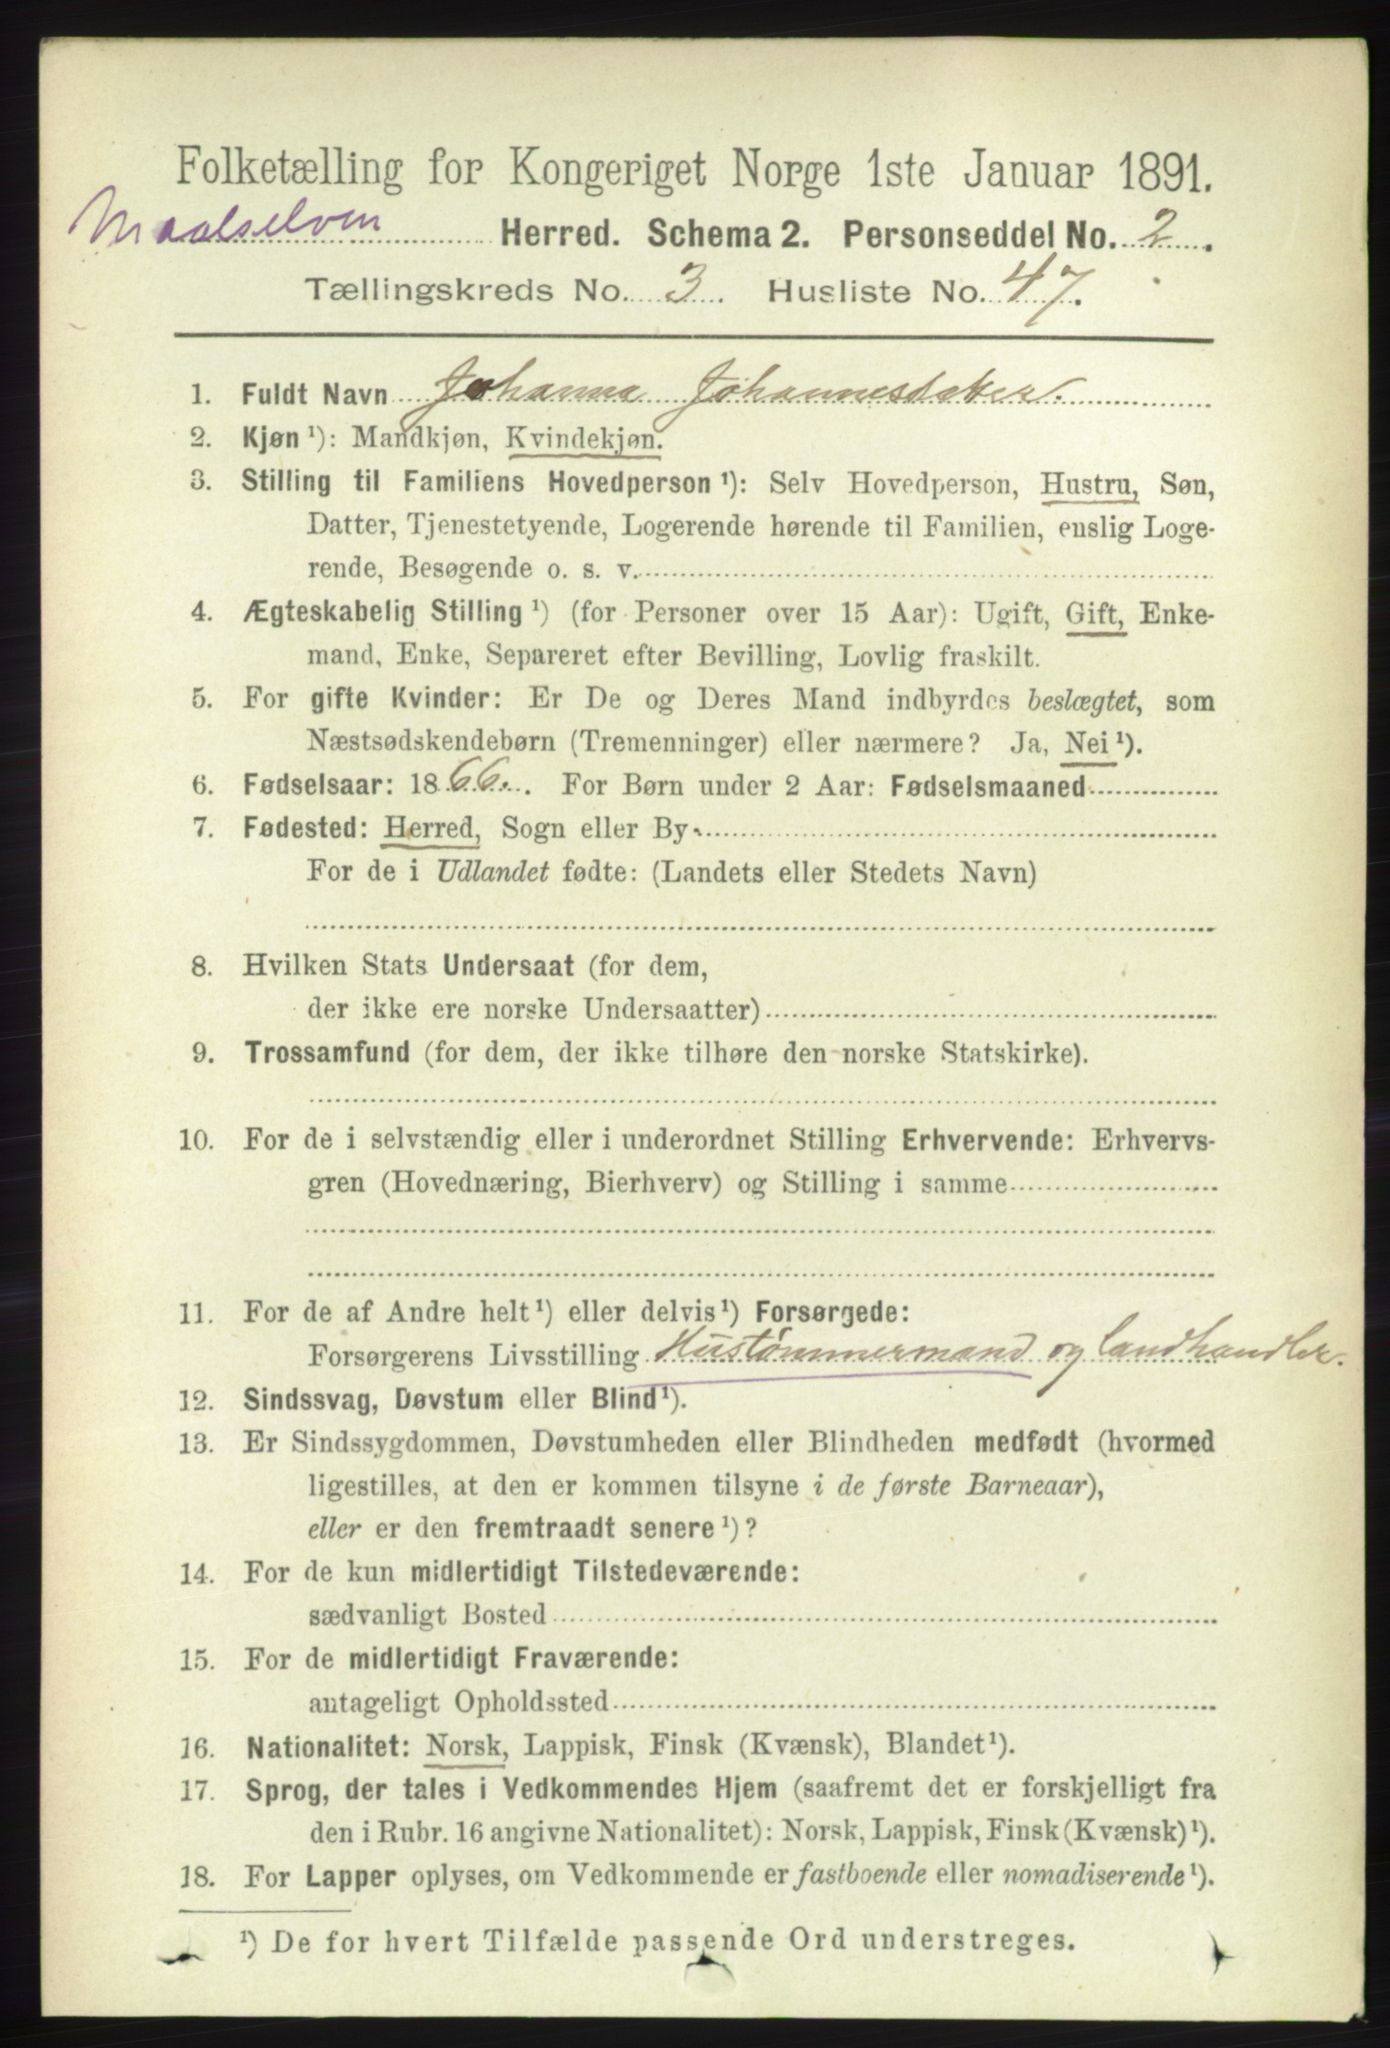 Folketælling for Kongeriget Norge 1ste Januar 1891.
Maalselven Herred. Schema 2. Personseddel No. 2.
Tællingskreds No. 3. Husliste No. 47.
1. Fuldt Navn Johanna Johannesdatter.
2. Kjøn ¹): Mandkjøn, Kvindekjøn.
3. Stilling til Familiens Hovedperson ¹): Selv Hovedperson, Hustru, Søn,
Datter, Tjenestetyende, Logerende hørende til Familien, enslig Loge-
rende, Besøgende o. s. v.
4. Ægteskabelig Stilling ¹) (for Personer over 15 Aar): Ugift, Gift, Enke-
mand, Enke, Separeret efter Bevilling, Lovlig fraskilt.
5. For gifte Kvinder: Er De og Deres Mand indbyrdes beslægtet, som
Næstsødskendebørn (Tremenninger) eller nærmere? Ja, Nei ¹).
6. Fødselsaar: 1866. For Børn under 2 Aar: Fødselsmaaned
7. Fødested: Herred, Sogn eller By
For de i Udlandet fødte: (Landets eller Stedets Navn)
8. Hvilken Stats Undersaat (for dem,
der ikke ere norske Undersaatter)
9. Trossamfund (for dem, der ikke tilhøre den norske Statskirke).
10. For de i selvstændig eller i underordnet Stilling Erhvervende: Erhvervs-
gren (Hovednæring, Bierhverv) og Stilling i samme
11. For de af Andre helt ¹) eller delvis ¹) Forsørgede:
Forsørgerens Livsstilling Hustømmermand og landhandler.
12. Sindssvag, Døvstum eller Blind ¹).
13. Er Sindssygdommen, Døvstumheden eller Blindheden medfødt (hvormed
ligestilles, at den er kommen tilsyne i de første Barneaar),
eller er den fremtraadt senere ¹)?
14. For de kun midlertidigt Tilstedeværende:
sædvanligt Bosted
15. For de midlertidigt Fraværende:
antageligt Opholdssted
16. Nationalitet: Norsk, Lappisk, Finsk (Kvænsk), Blandet ¹).
17. Sprog, der tales i Vedkommendes Hjem (saafremt det er forskjelligt fra
den i Rubr. 16 angivne Nationalitet): Norsk, Lappisk, Finsk (Kvænsk) ¹).
18. For Lapper oplyses, om Vedkommende er fastboende eller nomadiserende ¹).
¹) De for hvert Tilfælde passende Ord understreges.